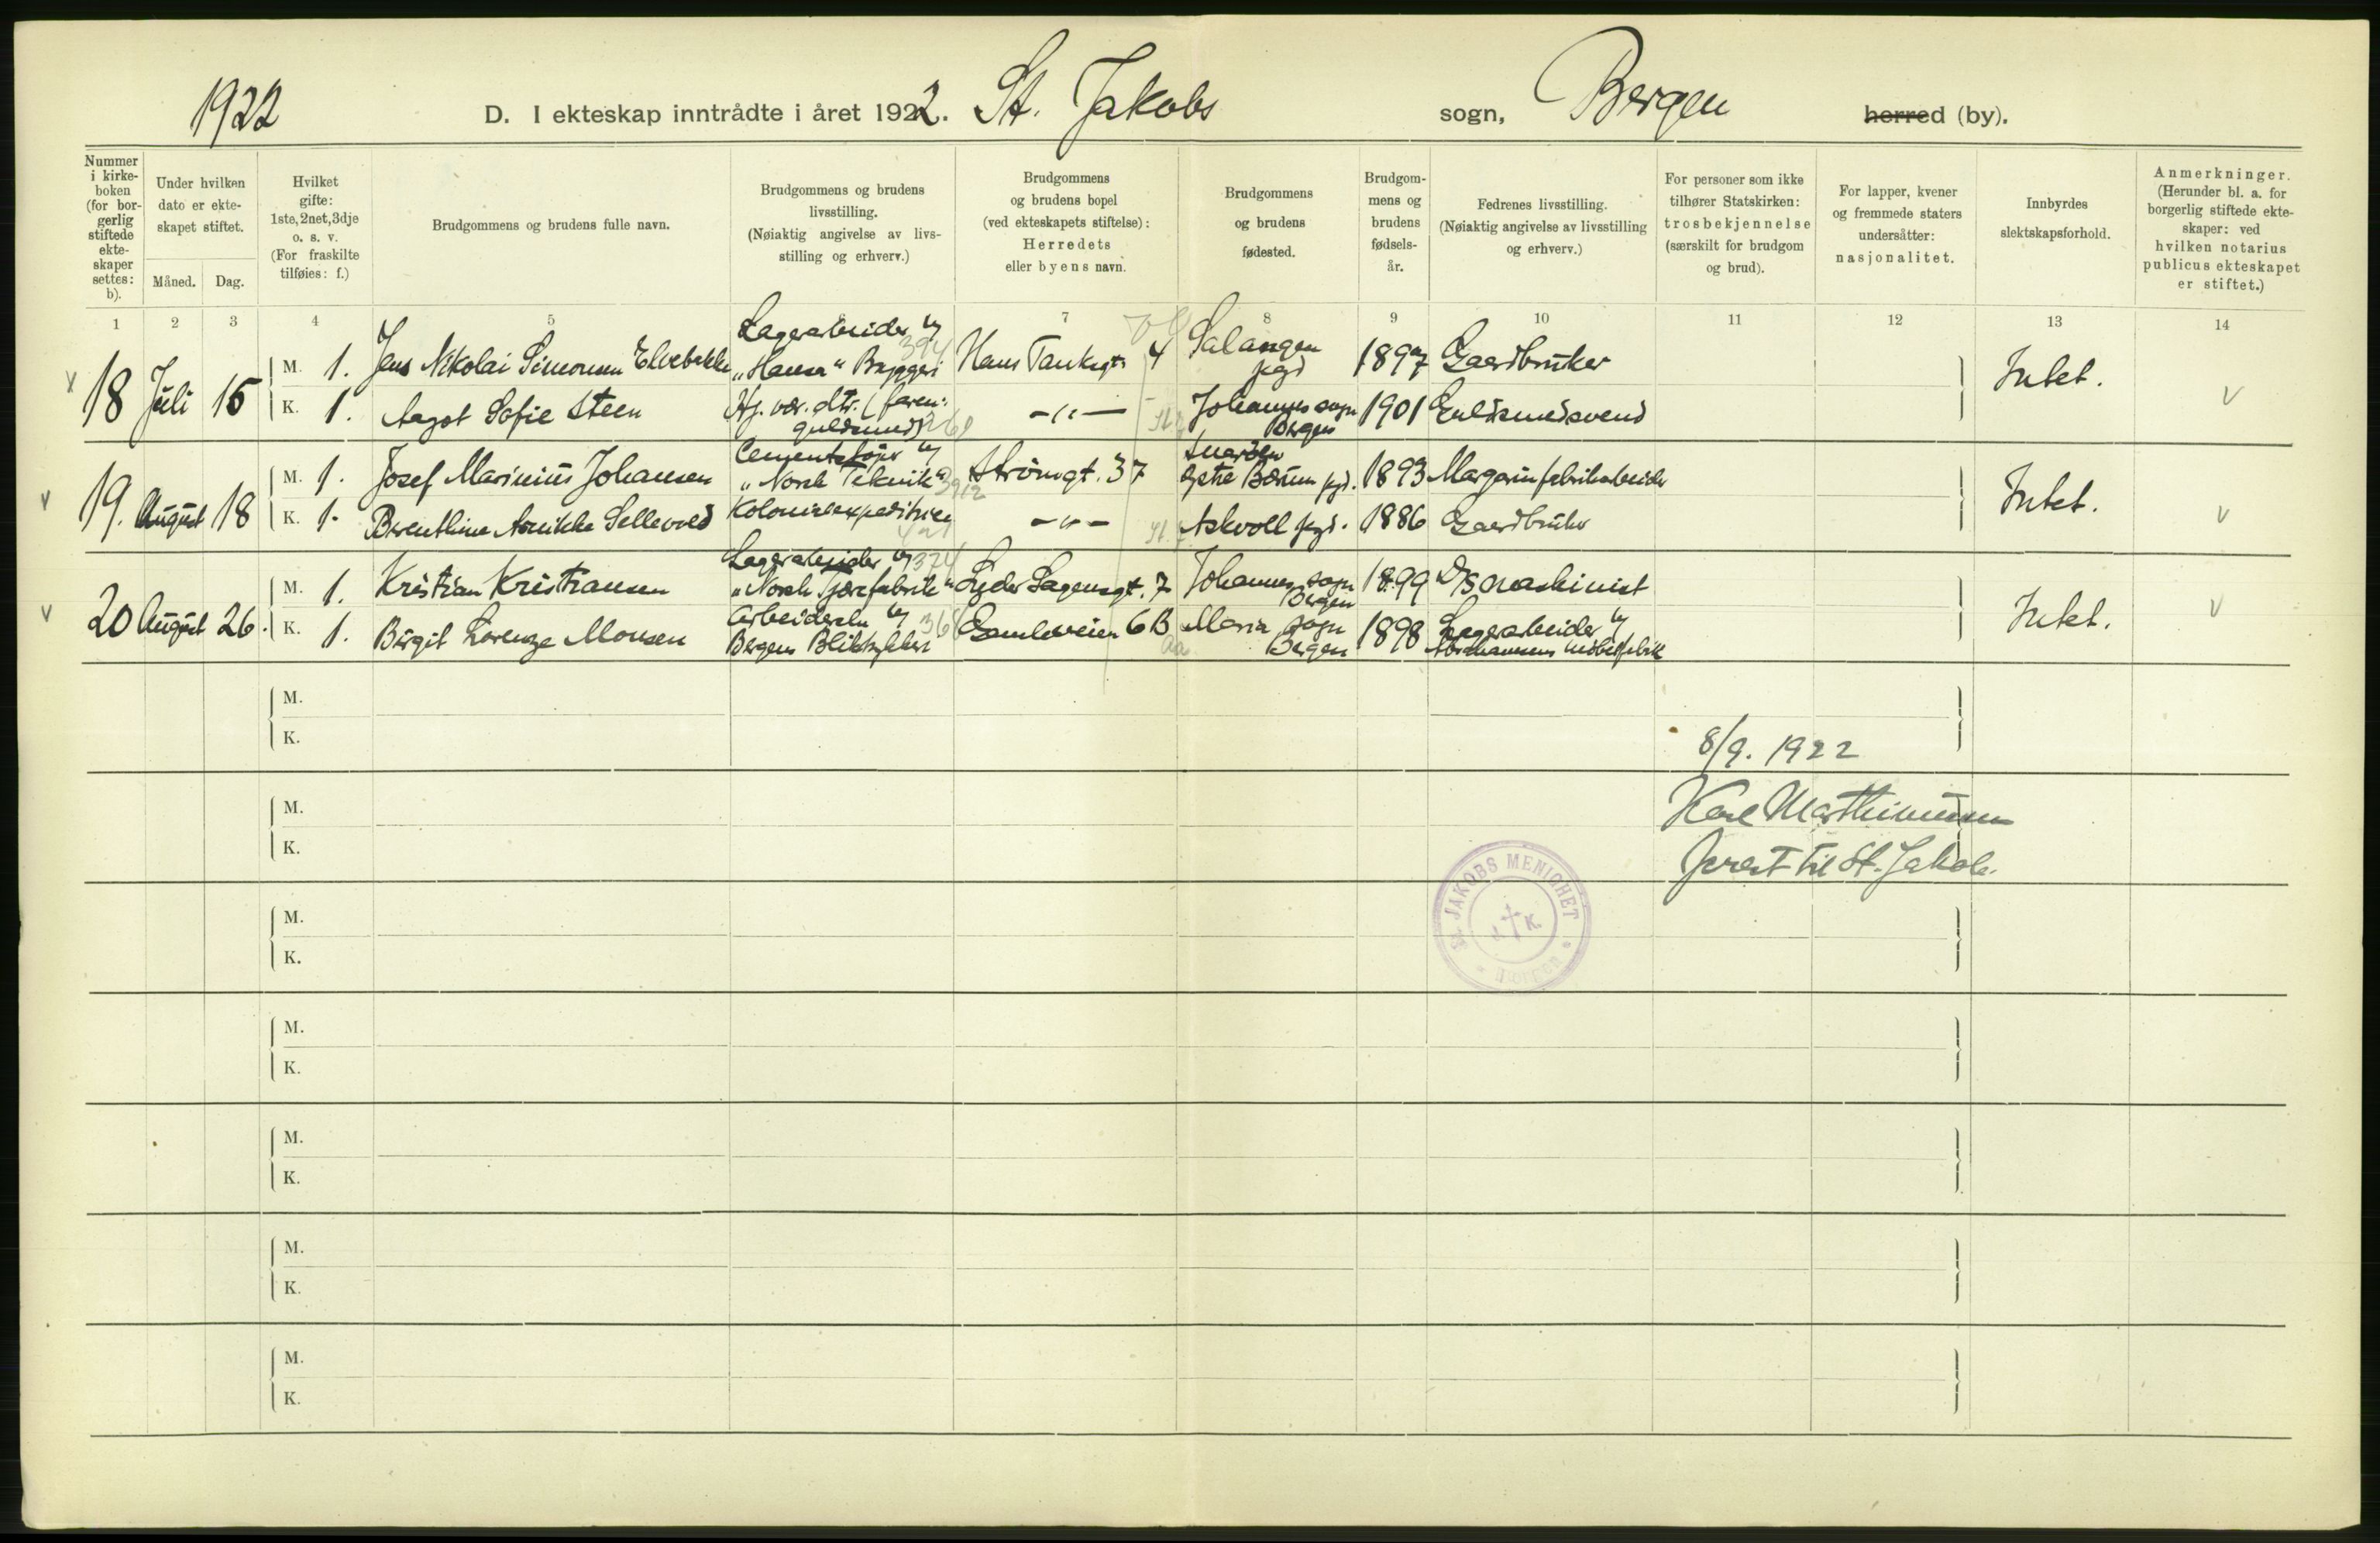 1922
D. I ekteskap inntrådte i året 1922. St. Jakobs sogn, Bergen herred (by).
Nummer i kirkeboken (for borgerlig stiftede ekteskaper settes: b).
Under hvilken dato er ekteskapet stiftet.
Måned. Dag.
Hvilket gifte: 1ste, 2net, 3dje o. s. v. (For fraskilte tilføies: f.)
Brudgommens og brudens fulle navn.
Brudgommens og brudens livsstilling. (Nøiaktig angivelse av livsstilling og erhverv.)
Brudgommens og brudens bopel (ved ekteskapets stiftelse): Herredets eller byens navn.
Brudgommens og brudens fødested.
Brudgommens og brudens fødselsår.
Fedrenes livsstilling. (Nøiaktig angivelse av livsstilling og erhverv.)
For personer som ikke tilhører Statskirken: trosbekjennelse (særskilt for brudgom og brud).
For lapper, kvener og fremmede staters undersåtter: nasjonalitet.
Innbyrdes slektskapsforhold.
Anmerkninger. (Herunder bl. a. for borgerlig stiftede ekteskaper: ved hvilken notarius publicus ekteskapet er stiftet.)
1 2 3 4 5 7 8 9 10 11 12 13 14
18 Juli 15 M. 1. Jens Nikolai Simonsen Elvebakke Lagerarbeider v/ "Hansa" Bryggeri 394 Hans Tanksgt 4 Salangen pgd 1897 Gaardbruker Intet. v
K. 1. Aagot Sofie Steen Hj. vær. dtr. (faren: guldsmed) -"- Johannes sogn Bergen 1901 Guldsmedsvend
19. August 18 M. 1. Josef Marinius Johansen Cementstøper v/ "Norsk Teknik" 3912 Strømgt. 37 Snarøen Østre Bærum pgd. 1893 Margarinfabrikarbeider Intet. v
K. 1. Berenthine Annikke Sellevold Kolonialexpeditrice -"- Askvoll pgd. 1886 Gaardbruker
20 August 26. M. 1. Kristian Kristiansen Lagerarbeider v/ 374 "Norsk Tjærefabrik" Lyder Sagensgt. 7 Johannes sogn Bergen 1899 D/S Maskinist Intet. v
K. 1. Birgit Lorenze Monsen Arbeiderske v/ Bergens Bliktrykkeri Gamleveien 6B Maria sogn Bergen 1898 Lagerarbeider v/ Abrahamsens møbelfabrik
M.
K.
8/9. 1922
M. Karl Marthinussen
K. prest til St. Jakob.
ST. JAKOBS MENIGHET
Bergen
M.
K.
M.
K.
M.
K.
M.
K.
M.
K.